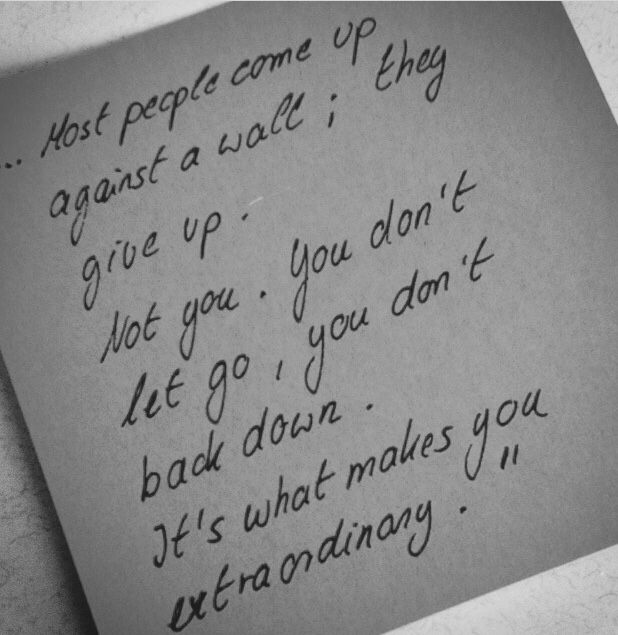 ... Most people come up
against a wall ; they
give up .
Not you . You don't
let go , you don't
back down .
It's what makes you
extraordinary . "